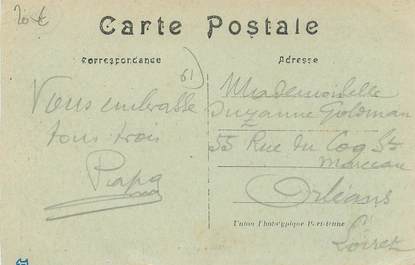 20 €
Carte Postale
Correspondance
Adresse
61)
Vous embrasse
tous trois
Papa
Mademoiselle
Suzanne Goldman
55 Rue du Coq St
Marceau
Orléans
Loiret
Union Phototypique Parisienne